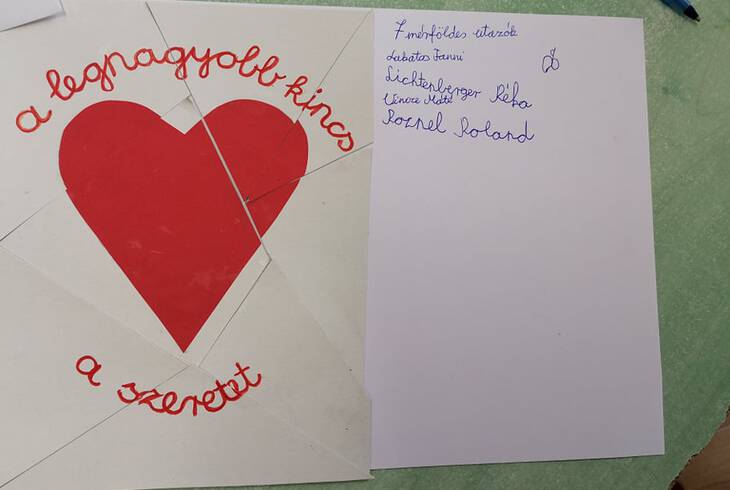 a legnagyobb kincs
a szeretet
7 mérföldes utazók
Lakatos Fanni
Lichtenberger Réka
Vencze Máté
Roznel Roland